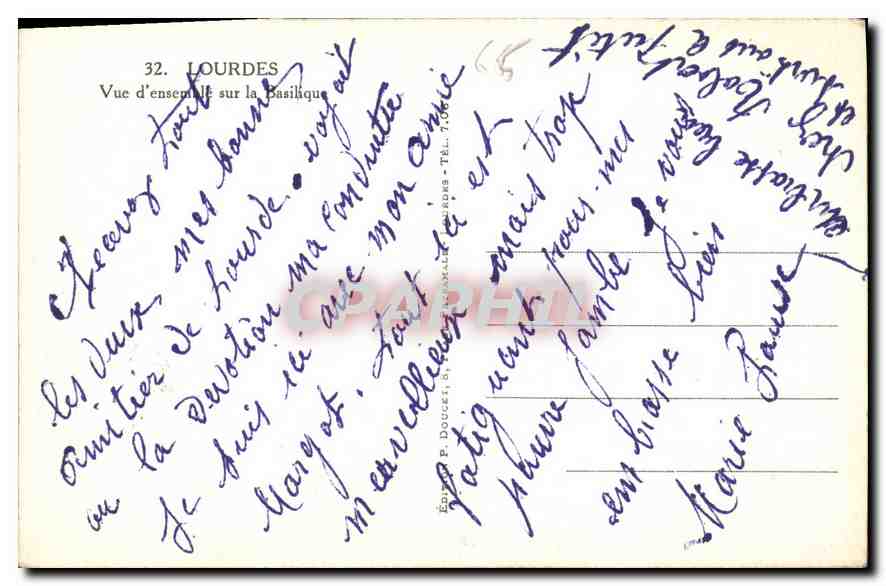 32. LOURDES
Vue d'ensemble sur la Basilique
Recevez tout
les deux, mes bonnes
amitiés de Lourde. voyait
ou la Devotion ma conduite
Je suis ici avec mon amie
Margot, tout ici est
merveilleux mais trop
fatiguant pour mes
pauvre jambe Je vous
embrasse bien
Marie
embrasse
chez
et
ÉDITION P. DOUCET, 8, LOURDES - TÉL. 7.06
CPAPHIL